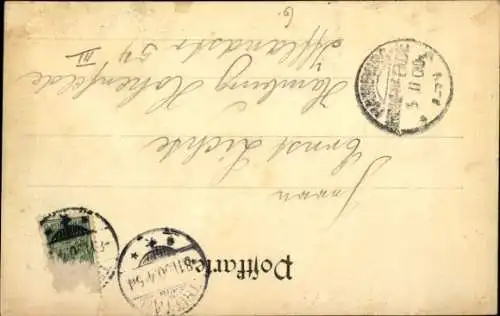 Postkarte
Herrn
Ernst Lichte
Hamburg Hohenfelde
Ifflandstr. 54 III
6.
HAMBURG
3 11 00
8.11.00. 4-5N